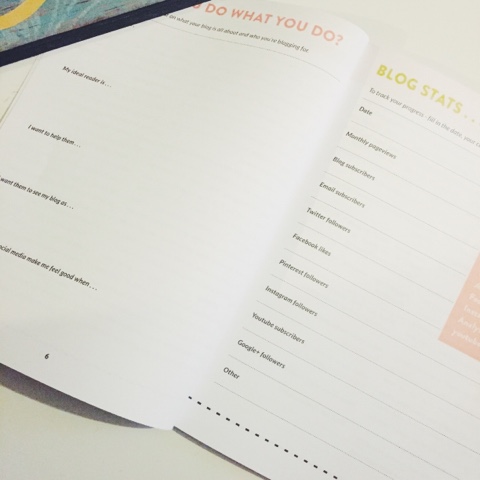 DO WHAT YOU DO?
what your blog is all about and who you're blogging for.
My ideal reader is . . .
I want to help them . . .
want them to see my blog as . . .
social media make me feel good when . . .
6
BLOG STATS . . .
To track your progress - fill in the date, your
Date
Monthly pageviews
Blog subscribers
Email subscribers
Twitter followers
Facebook likes
Pinterest followers
Instagram followers
Youtube subscribers
Google+ followers
Other